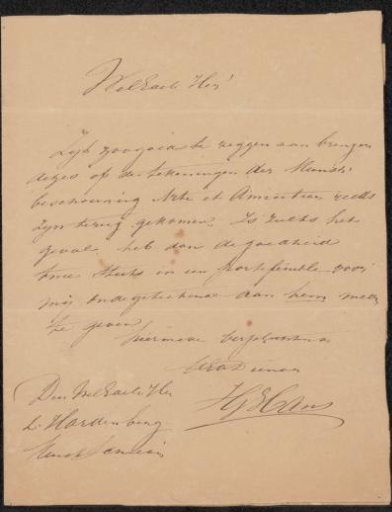 WelEdele Heer!
Zijt zoo goed te zeggen aan brenger
dezes of de tekeningen der Kunst-
beschouwing Arte et Amicitiae reeds
zijn terug gekomen. Is zulks het
geval heb dan de goedheid
twee stuks in een portefeuille voor
mij ondergetekende aan hem mede
te geven
hiermede verpligtende
UEd Dienaar
Den WelEdele Heer
L. Hardenberg
Kunst